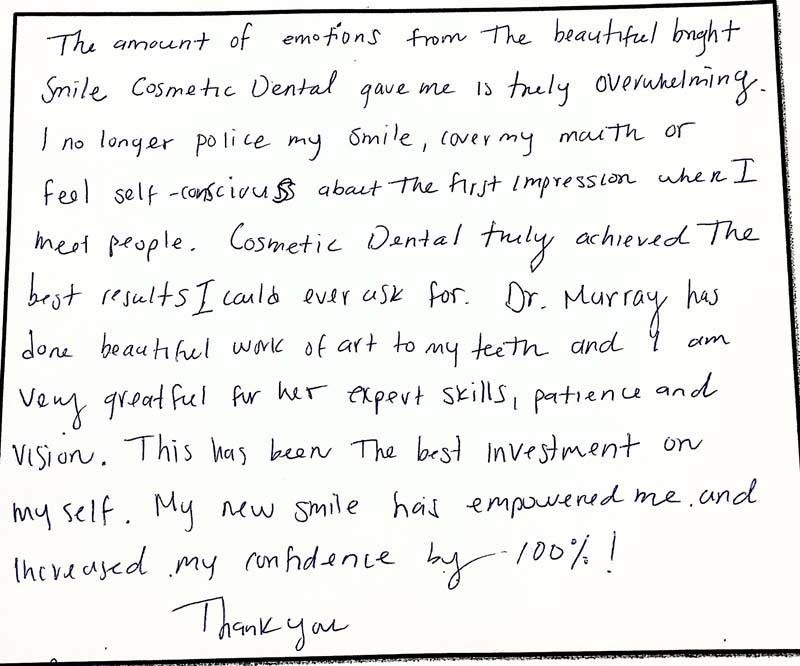 The amount of emotions from The beautiful bright
Smile Cosmetic Dental gave me is truly overwhelming.
I no longer police my smile, cover my mouth or
feel self-conscious about The first impression when I
meet people. Cosmetic Dental truly achieved The
best results I could ever ask for. Dr. Murray has
done beautiful work of art to my teeth and I am
very greatful for her expert skills, patience and
vision. This has been The best investment on
my self. My new smile has empowered me and
increased my confidence by 100%!
Thank you